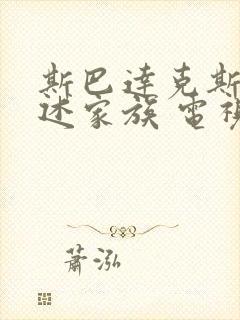 斯巴達克斯
述家族 電視
蕭泓